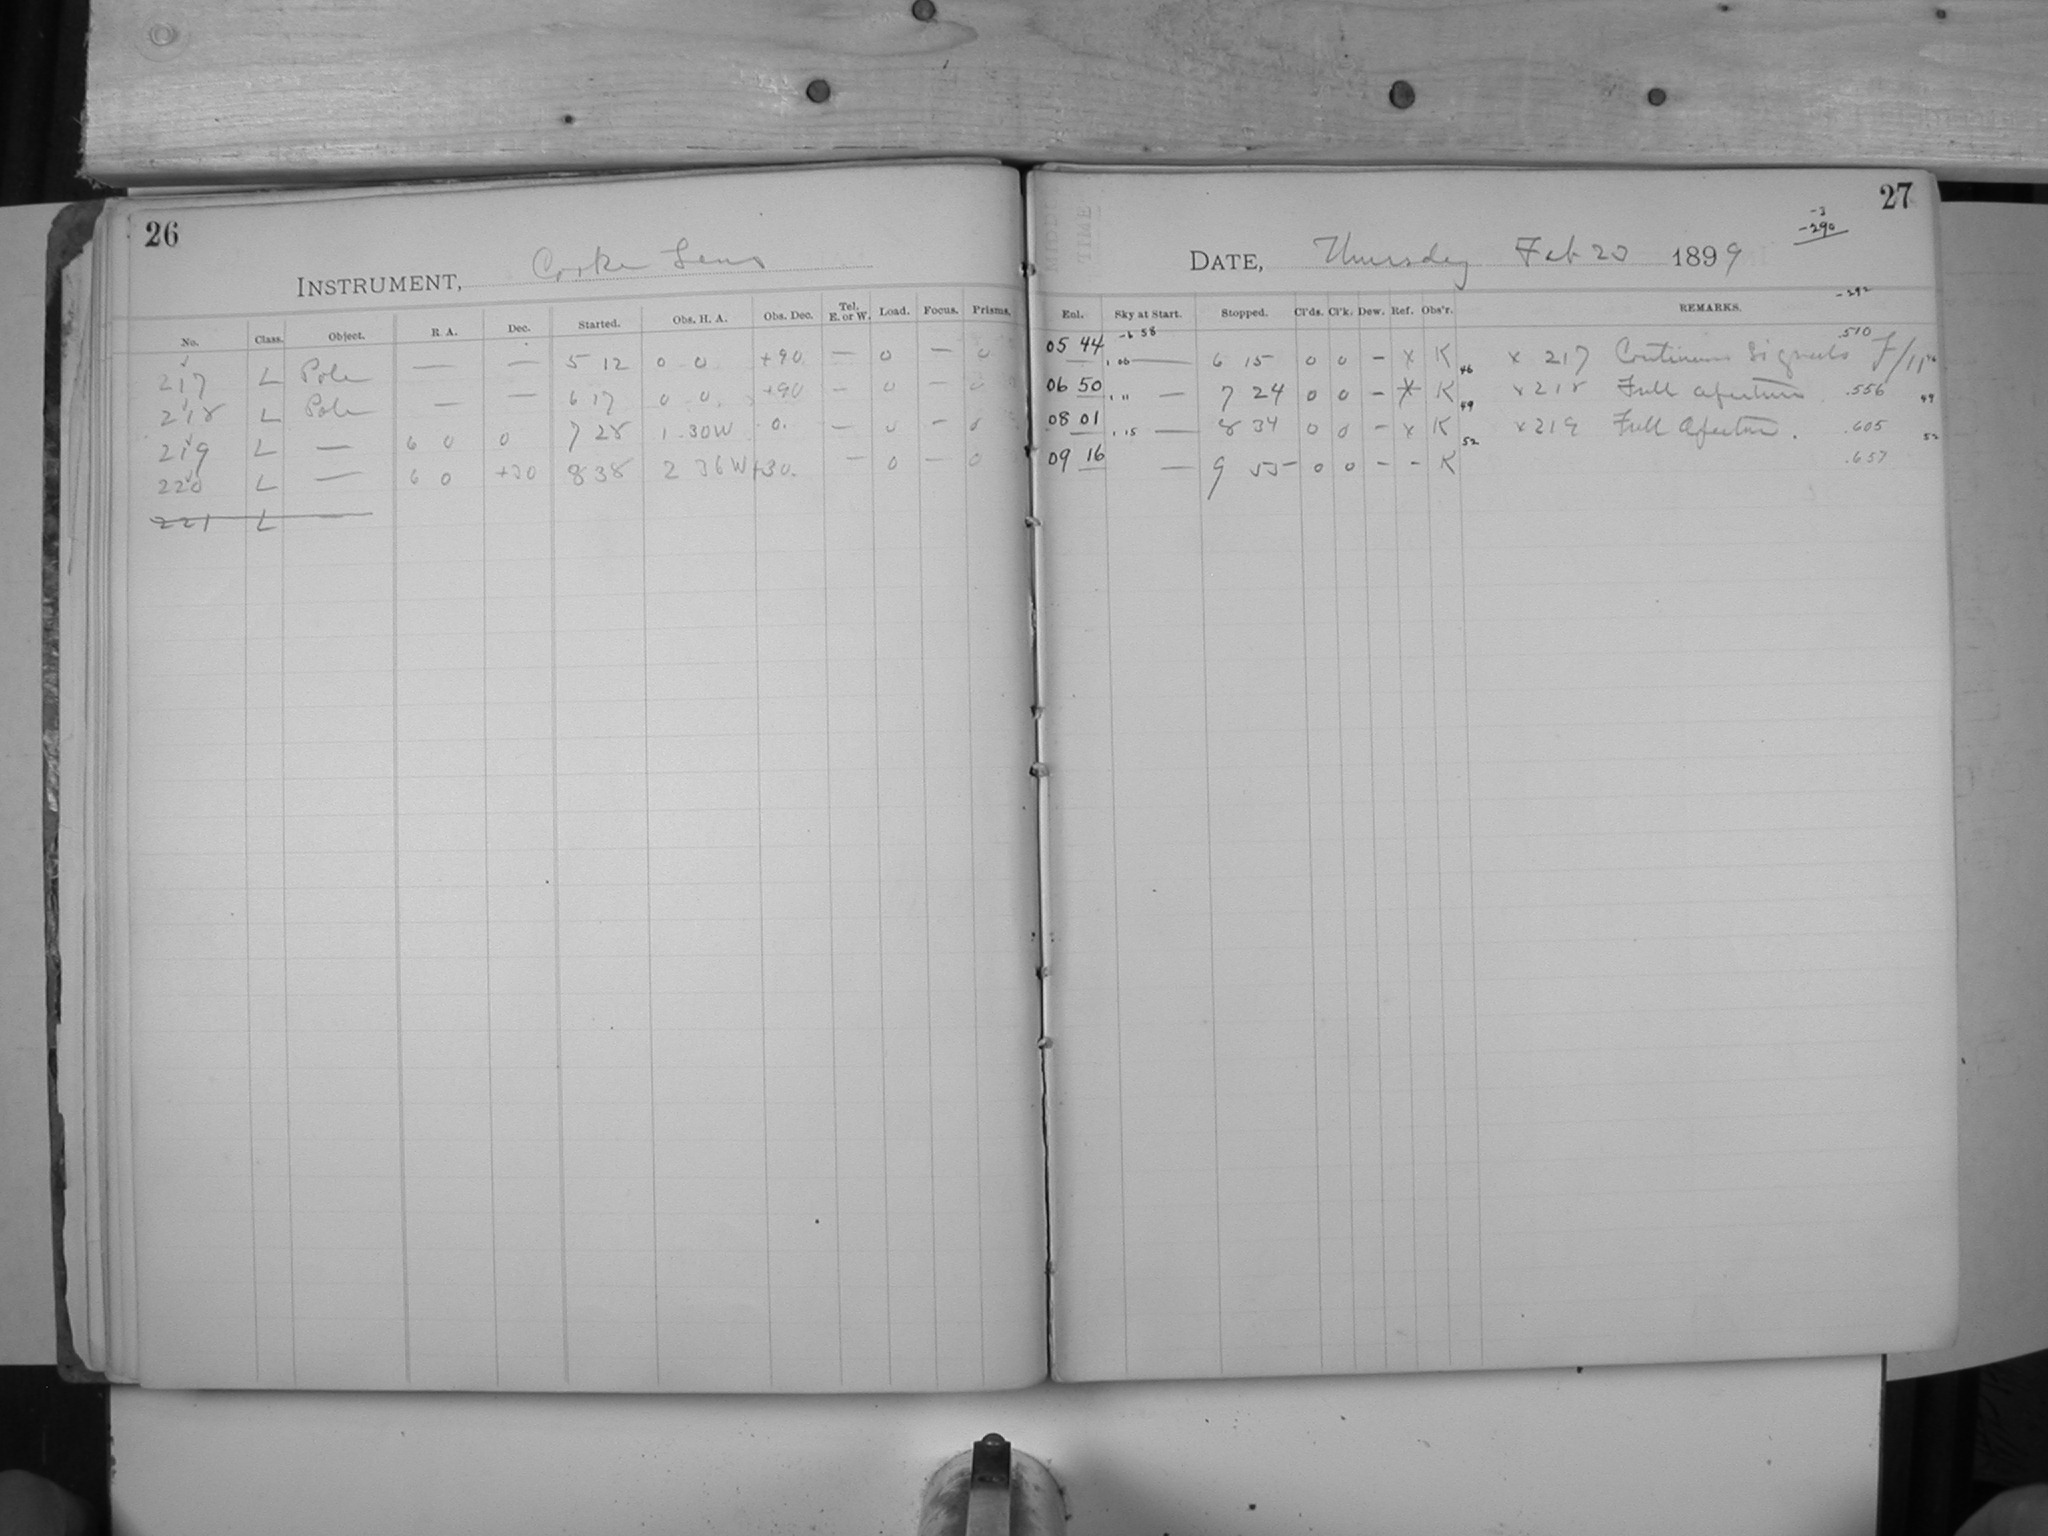 26
INSTRUMENT, Cooke Lens
No. Class. Object. R. A. Dec. Started. Obs. H. A. Obs. Dec. Tel. E. or W. Load. Focus. Prisms.
217 L Pole — — 5 12 0 0 +90 — 0 — 0
218 L Pole — — 6 17 0 0. +90 — 0 — 0
219 L — 6 0 0 7 28 1 30W 0. — 0 — 0
220 L — 6 0 +30 8 38 2 36W +30. — 0 — 0
221 L —
27
-3
-290
DATE, Thursday Feb 23 1899
-292
Enl. Sky at Start. Stopped. Cl'ds. Cl'k. Dew. Ref. Obs'r. REMARKS.
-6 58
.510
05 44 , 06 — 6 15 0 0 - x K 46 x 217 Continuous Signals F/11 46
06 50 , 11 — 7 24 0 0 - x K 49 x 218 Full aperture .556 49
08 01 , 15 — 8 34 0 0 - x K 52 x 219 Full Aperture. .605 52
09 16 — 9 55 0 0 - - K .657